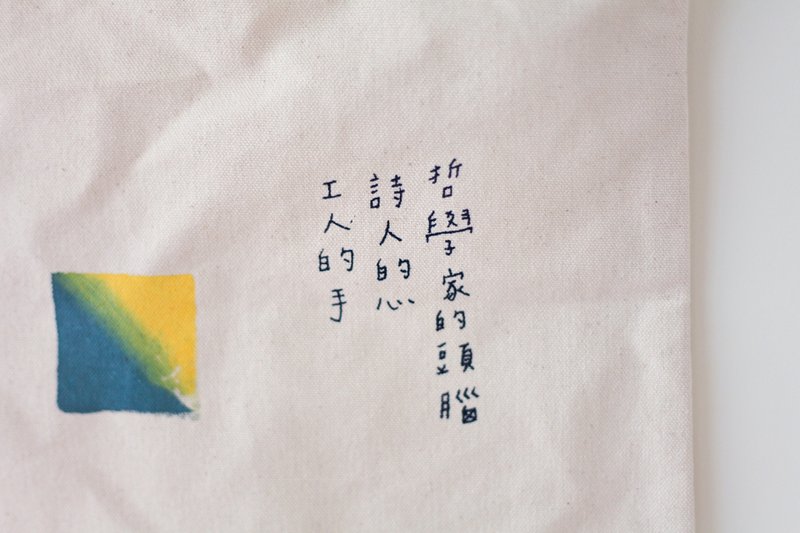 哲學家的頭腦
詩人的心
工人的手